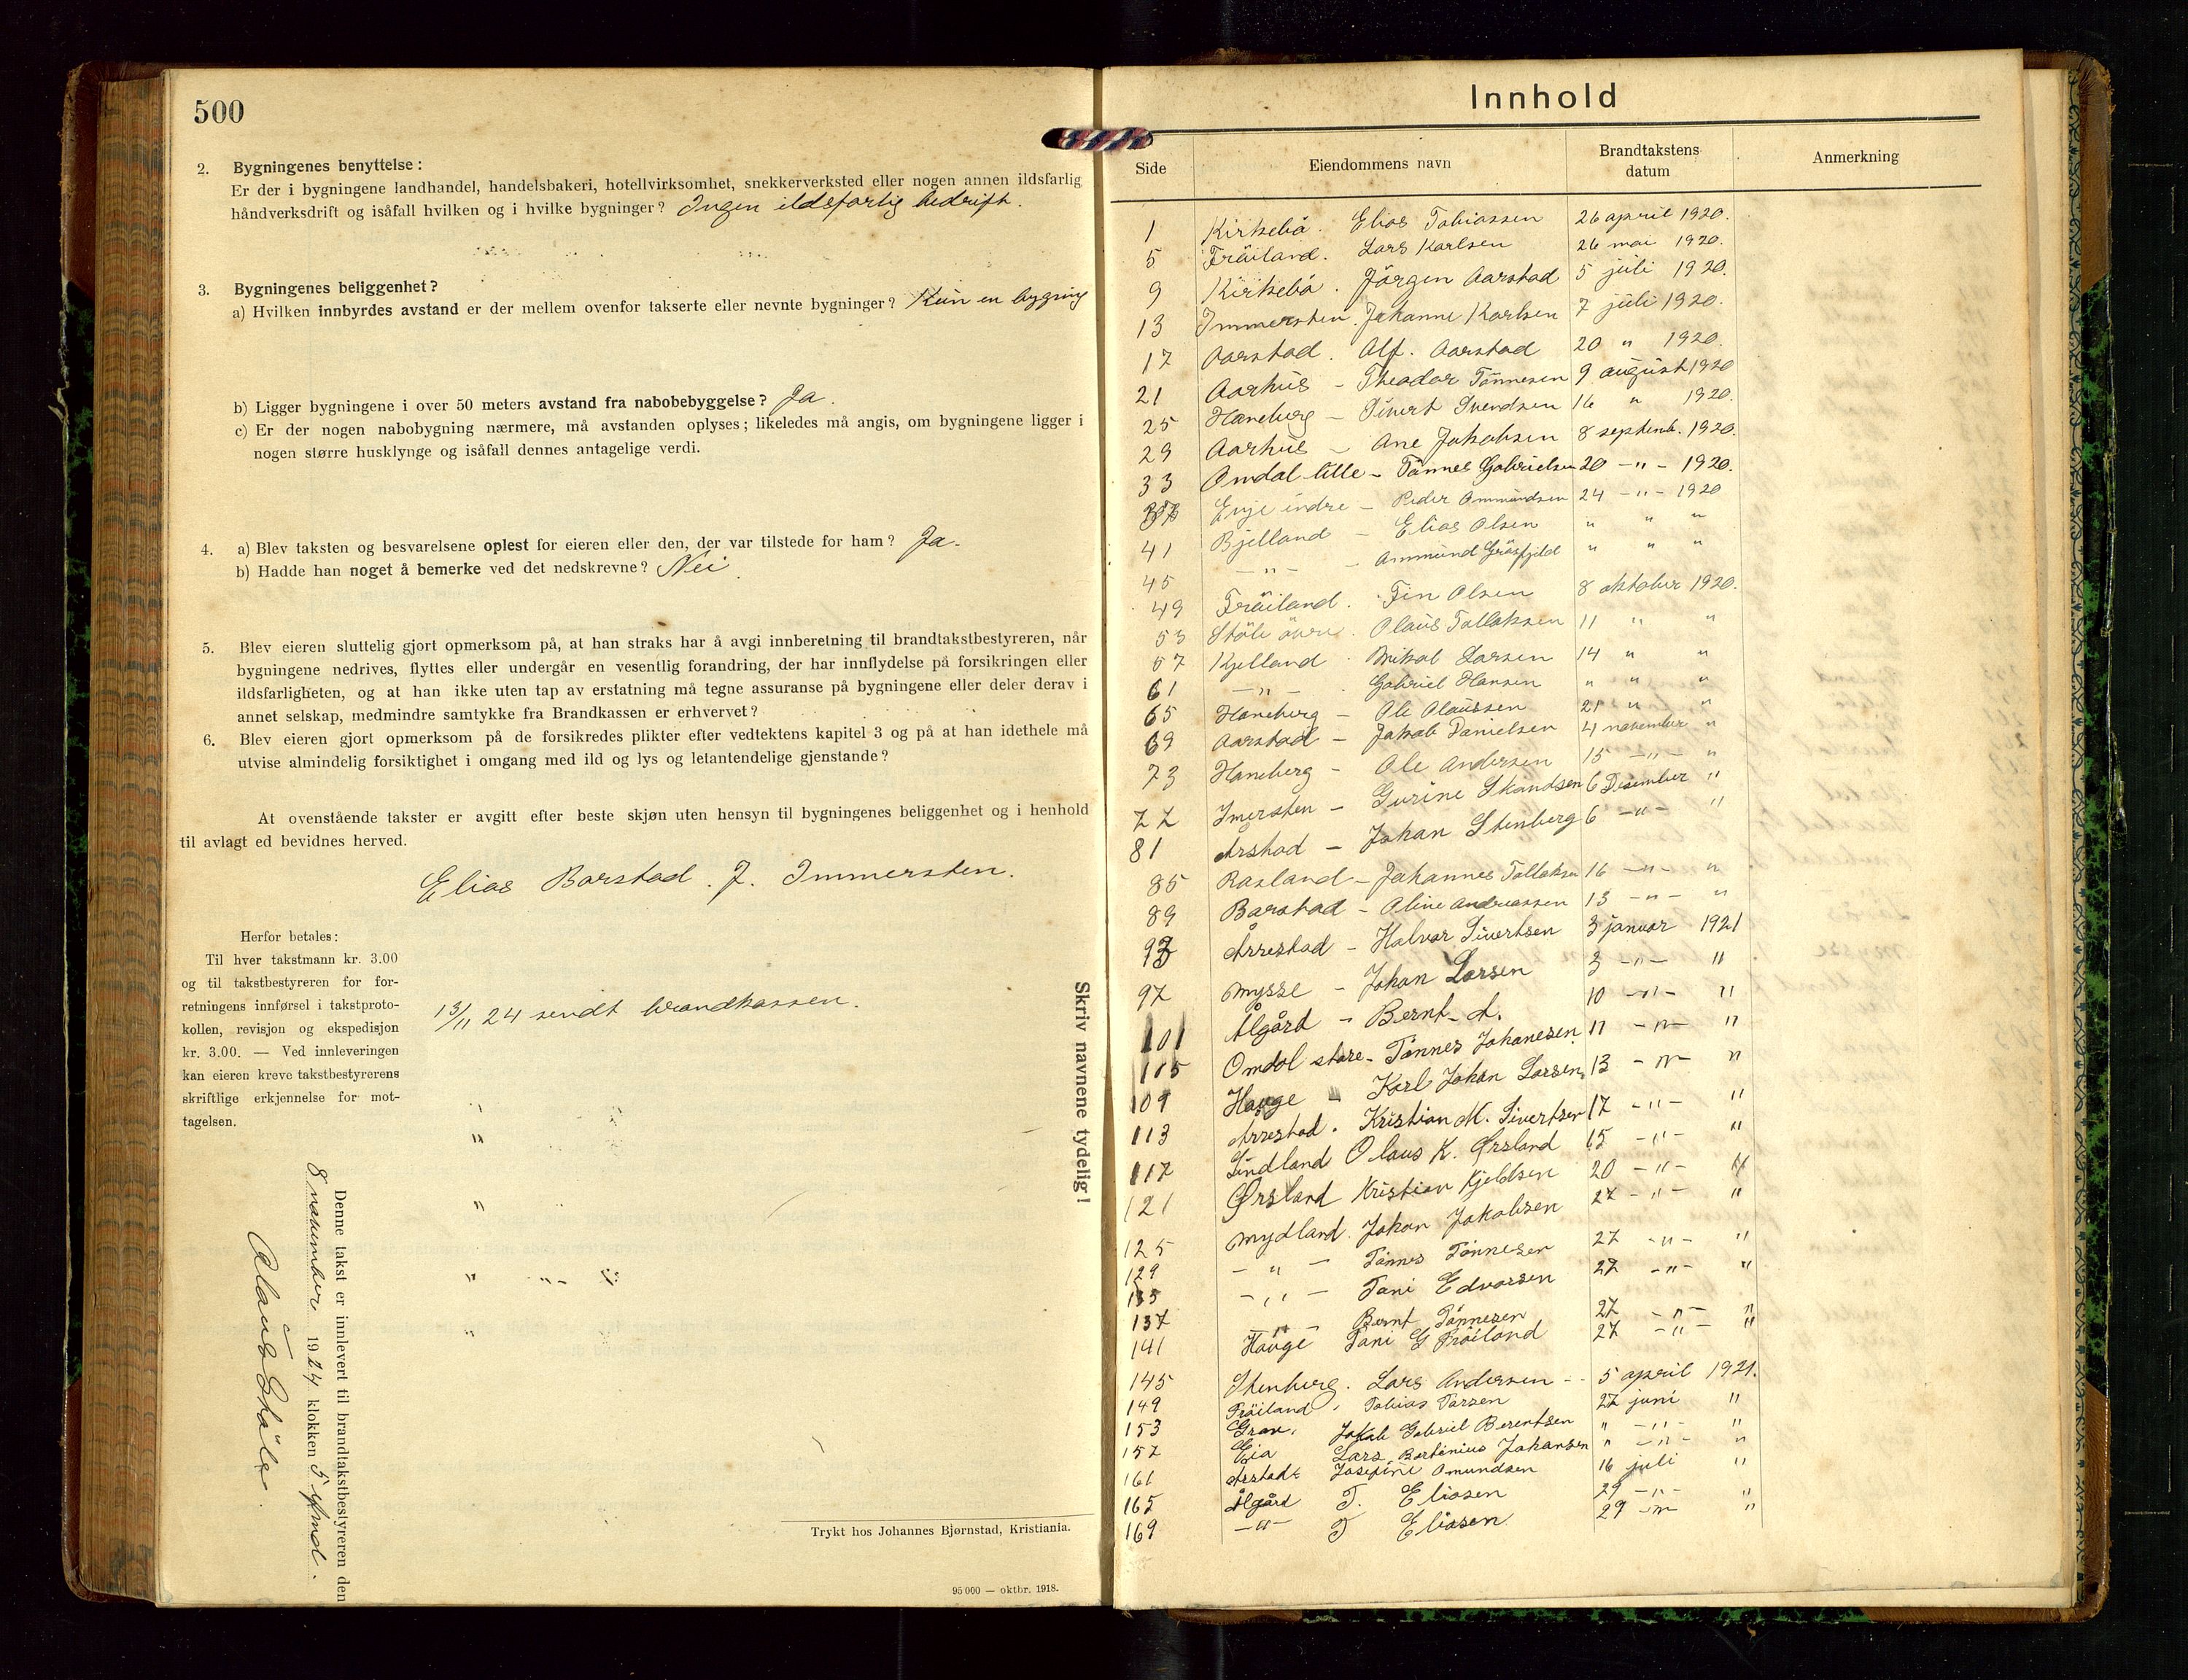 500
2. Bygningenes benyttelse:
Er der i bygningene landhandel, handelsbakeri, hotellvirksomhet, snekkerverksted eller nogen annen ildsfarlig
håndverksdrift og isåfall hvilken og i hvilke bygninger? Ingen ildsfarlig bedrift.
3. Bygningenes beliggenhet?
a) Hvilken innbyrdes avstand er der mellem ovenfor takserte eller nevnte bygninger? Kun en bygning
b) Ligger bygningene i over 50 meters avstand fra nabobebyggelse? Ja.
c) Er der nogen nabobygning nærmere, må avstanden oplyses; likeledes må angis, om bygningene ligger i
nogen større husklynge og isåfall dennes antagelige verdi.
4. a) Blev taksten og besvarelsene oplest for eieren eller den, der var tilstede for ham? Ja.
b) Hadde han noget å bemerke ved det nedskrevne? Nei
5. Blev eieren sluttelig gjort opmerksom på, at han straks har å avgi innberetning til brandtakstbestyreren, når
bygningene nedrives, flyttes eller undergår en vesentlig forandring, der har innflydelse på forsikringen eller
ildsfarligheten, og at han ikke uten tap av erstatning må tegne assuranse på bygningene eller deler derav i
annet selskap, medmindre samtykke fra Brandkassen er erhvervet?
6. Blev eieren gjort opmerksom på de forsikredes plikter efter vedtektens kapitel 3 og på at han idethele må
utvise almindelig forsiktighet i omgang med ild og lys og letantendelige gjenstande?
At ovenstående takster er avgitt efter beste skjøn uten hensyn til bygningenes beliggenhet og i henhold
til avlagt ed bevidnes herved.
Elias Barstad. J. Immersten.
Herfor betales:
Til hver takstmann kr. 3.00
og til takstbestyreren for for-
retningens innførsel i takstproto-
kollen, revisjon og ekspedisjon
kr. 3.00. — Ved innleveringen
kan eieren kreve takstbestyrerens
skriftlige erkjennelse for mot-
tagelsen.
13/11 24 sendt brandkassen.
Skriv navnene tydelig!
Denne takst er innlevert til brandtakstbestyreren den
8 november 1924 klokken 5 efmd.
Trykt hos Johannes Bjørnstad, Kristiania.
95 000 — oktbr. 1918.
Innhold
Side Eiendommens navn Brandtakstens datum Anmerkning
1 Kirkebö. Elias Tobiassen 26 april 1920.
5 Fröiland. Lars Karlsen 26 mai 1920.
9 Kirkebö. Jörgen Aarstad 5 juli 1920.
13 Immersten. Johanne Karlsen 7 juli 1920.
17 Aarstad. Alf. Aarstad 20 " 1920.
21 Aarhus – Theodor Tönnesen 9 august 1920
25 Haneberg – Sivert Svendsen 16 " 1920.
29 Aarhus – Ane Jakobsen 8 septenb. 1920.
33 Omdal lille – Tönnes Gabrielsen 20 –"– 1920.
Eije indre – Peder Ommundsen 24 –"– 1920
41 Bjelland – Elias Olsen " " "
45 –"– – Ommund Gråsfjeld " " "
49 Fröiland. Fin Olsen 8 oktober 1920.
53 Stöle övre. Olaus Tollaksen 11 " "
57 Kjelland. Mikal Larsen 14 " "
61 –"– . Gabriel Hansen " " "
65 Haneberg – Ole Olaussen 21 " "
69 Aarstad – Jakob Danielsen 4 november "
73 Haneberg – Ole Andersen 15 –"– "
77 Imersten – Gurine Skandsen 6 Desember "
81 Årstad – Johan Stenberg 6 –"– "
85 Rasland – Johannes Tollaksen 16 –"– "
89 Barstad – Oline Andreassen 13 –"– "
93 Årrestad – Halvor Sivertsen 3 januar 1921
97 Mysse – Johan Larsen 3 –"– "
101 Ålgård – Bernt A. 10 –"– "
105 Omdal store – Tönnes Johanesen. 11 –"– "
109 Hauge – Karl Johan Larsen. 13 –"– "
113 Årrestad. Kristian M. Sivertsen 17 –"– "
117 Lindland Olaus K. Ørsland 15 –"– "
121 Ørsland Kristian Kjeldsen 20 –"– "
125 Mydland. Johan Jakobsen 27 –"– "
129 –"– Tönnes Tönnesen 27 –"– "
133 –"– Tani Edvarsen 27 –"– "
137 –"– Bernt Tönnesen 27 –"– "
141 Hauge Tani G Fröiland 27 –"– "
145 Stenberg. Lars Andersen -- 5 april 1921.
149 Fröiland, Tobias Tarsen 27 juni "
153 Grav. Jakob Gabriel Berentsen " –"– "
157 Eia Lars Bertinius Johansen " –"– "
161 Årstad Josefine Omundsen 16 juli "
165 Ålgård T. Eliasen 29 –"– "
169 –"– T Eliasen 29 –"– "